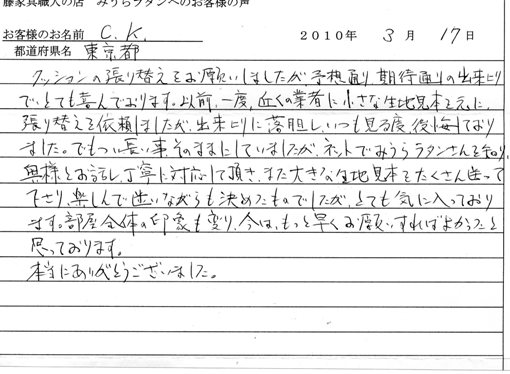 藤家具職人の店 みうらラタンへのお客様の声
お客様のお名前 C.K.
2010年 3月 17日
都道府県名 東京都
クッションの張り替えをお願いしましたが予想通り、期待通りの出来上り
で、とても喜んでおります。以前、一度、近くの業者に小さな生地見本を元に、
張り替えを依頼しましたが、出来上りに落胆し、いつも見る度、後悔しており
ました。でもつい長い事そのままにしていましたが、ネットでみうらラタンさんを知り、
奥様とお話し、丁寧に対応して頂き、また大きな生地見本をたくさん送って
下さり、楽しんで迷いながらも決めたものでしたが、とても気に入っており
ます。部屋全体の印象も変り、今は、もっと早くお願いすればよかったと
思っております。
本当にありがとうございました。